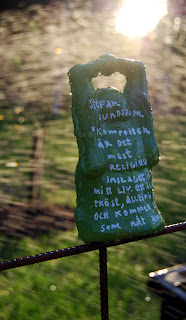 STEFAN
SUNDSTRÖM
"KOMPOSTEN
ÄR DET
MEST
RELIGIÖSA
INSLAGET I
MITT LIV. EN
TRÖST, ALLTING
OCH KOMMER
SOM NÅT